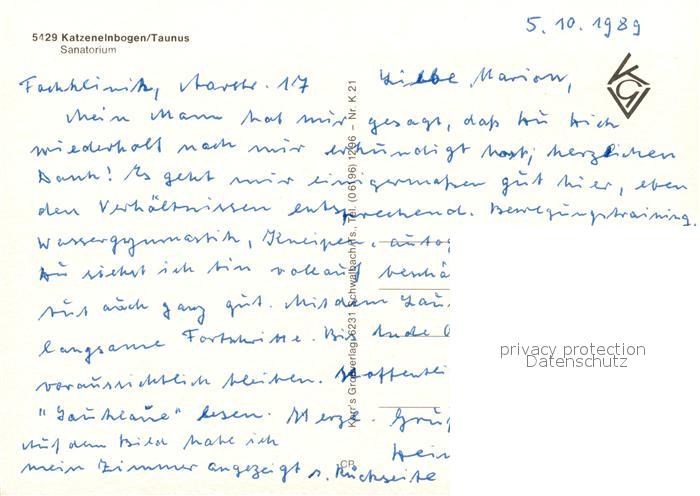 5.10.1989
5429 Katzenelnbogen/Taunus
Sanatorium
Fachklinik, Aarstr. 17 Liebe Marion,
Mein Mann hat mir gesagt, daß Du Dich
wiederholt nach mir erkundigt hast; herzlichen
Dank! Es geht mir einigermaßen gut hier, eben
den Verhältnissen entsprechend. Bewegungstraining.
Wassergymnastik, Kneipen, autog
Du siehst ich bin vollauf beschä
tut auch ganz gut. Mit dem Lau
langsame Fortschritte. Bis Ende
voraussichtlich bleiben. Hoffentli
lesen. Herzl. Grüß
Auf dem Bild habe ich
mein Zimmer angezeigt s. Rückseite
Karr's Großverlag, 6231 Schwalbach/Ts., Tel. (06196) 1296 – Nr. K 21
CP
privacy protection
Datenschutz